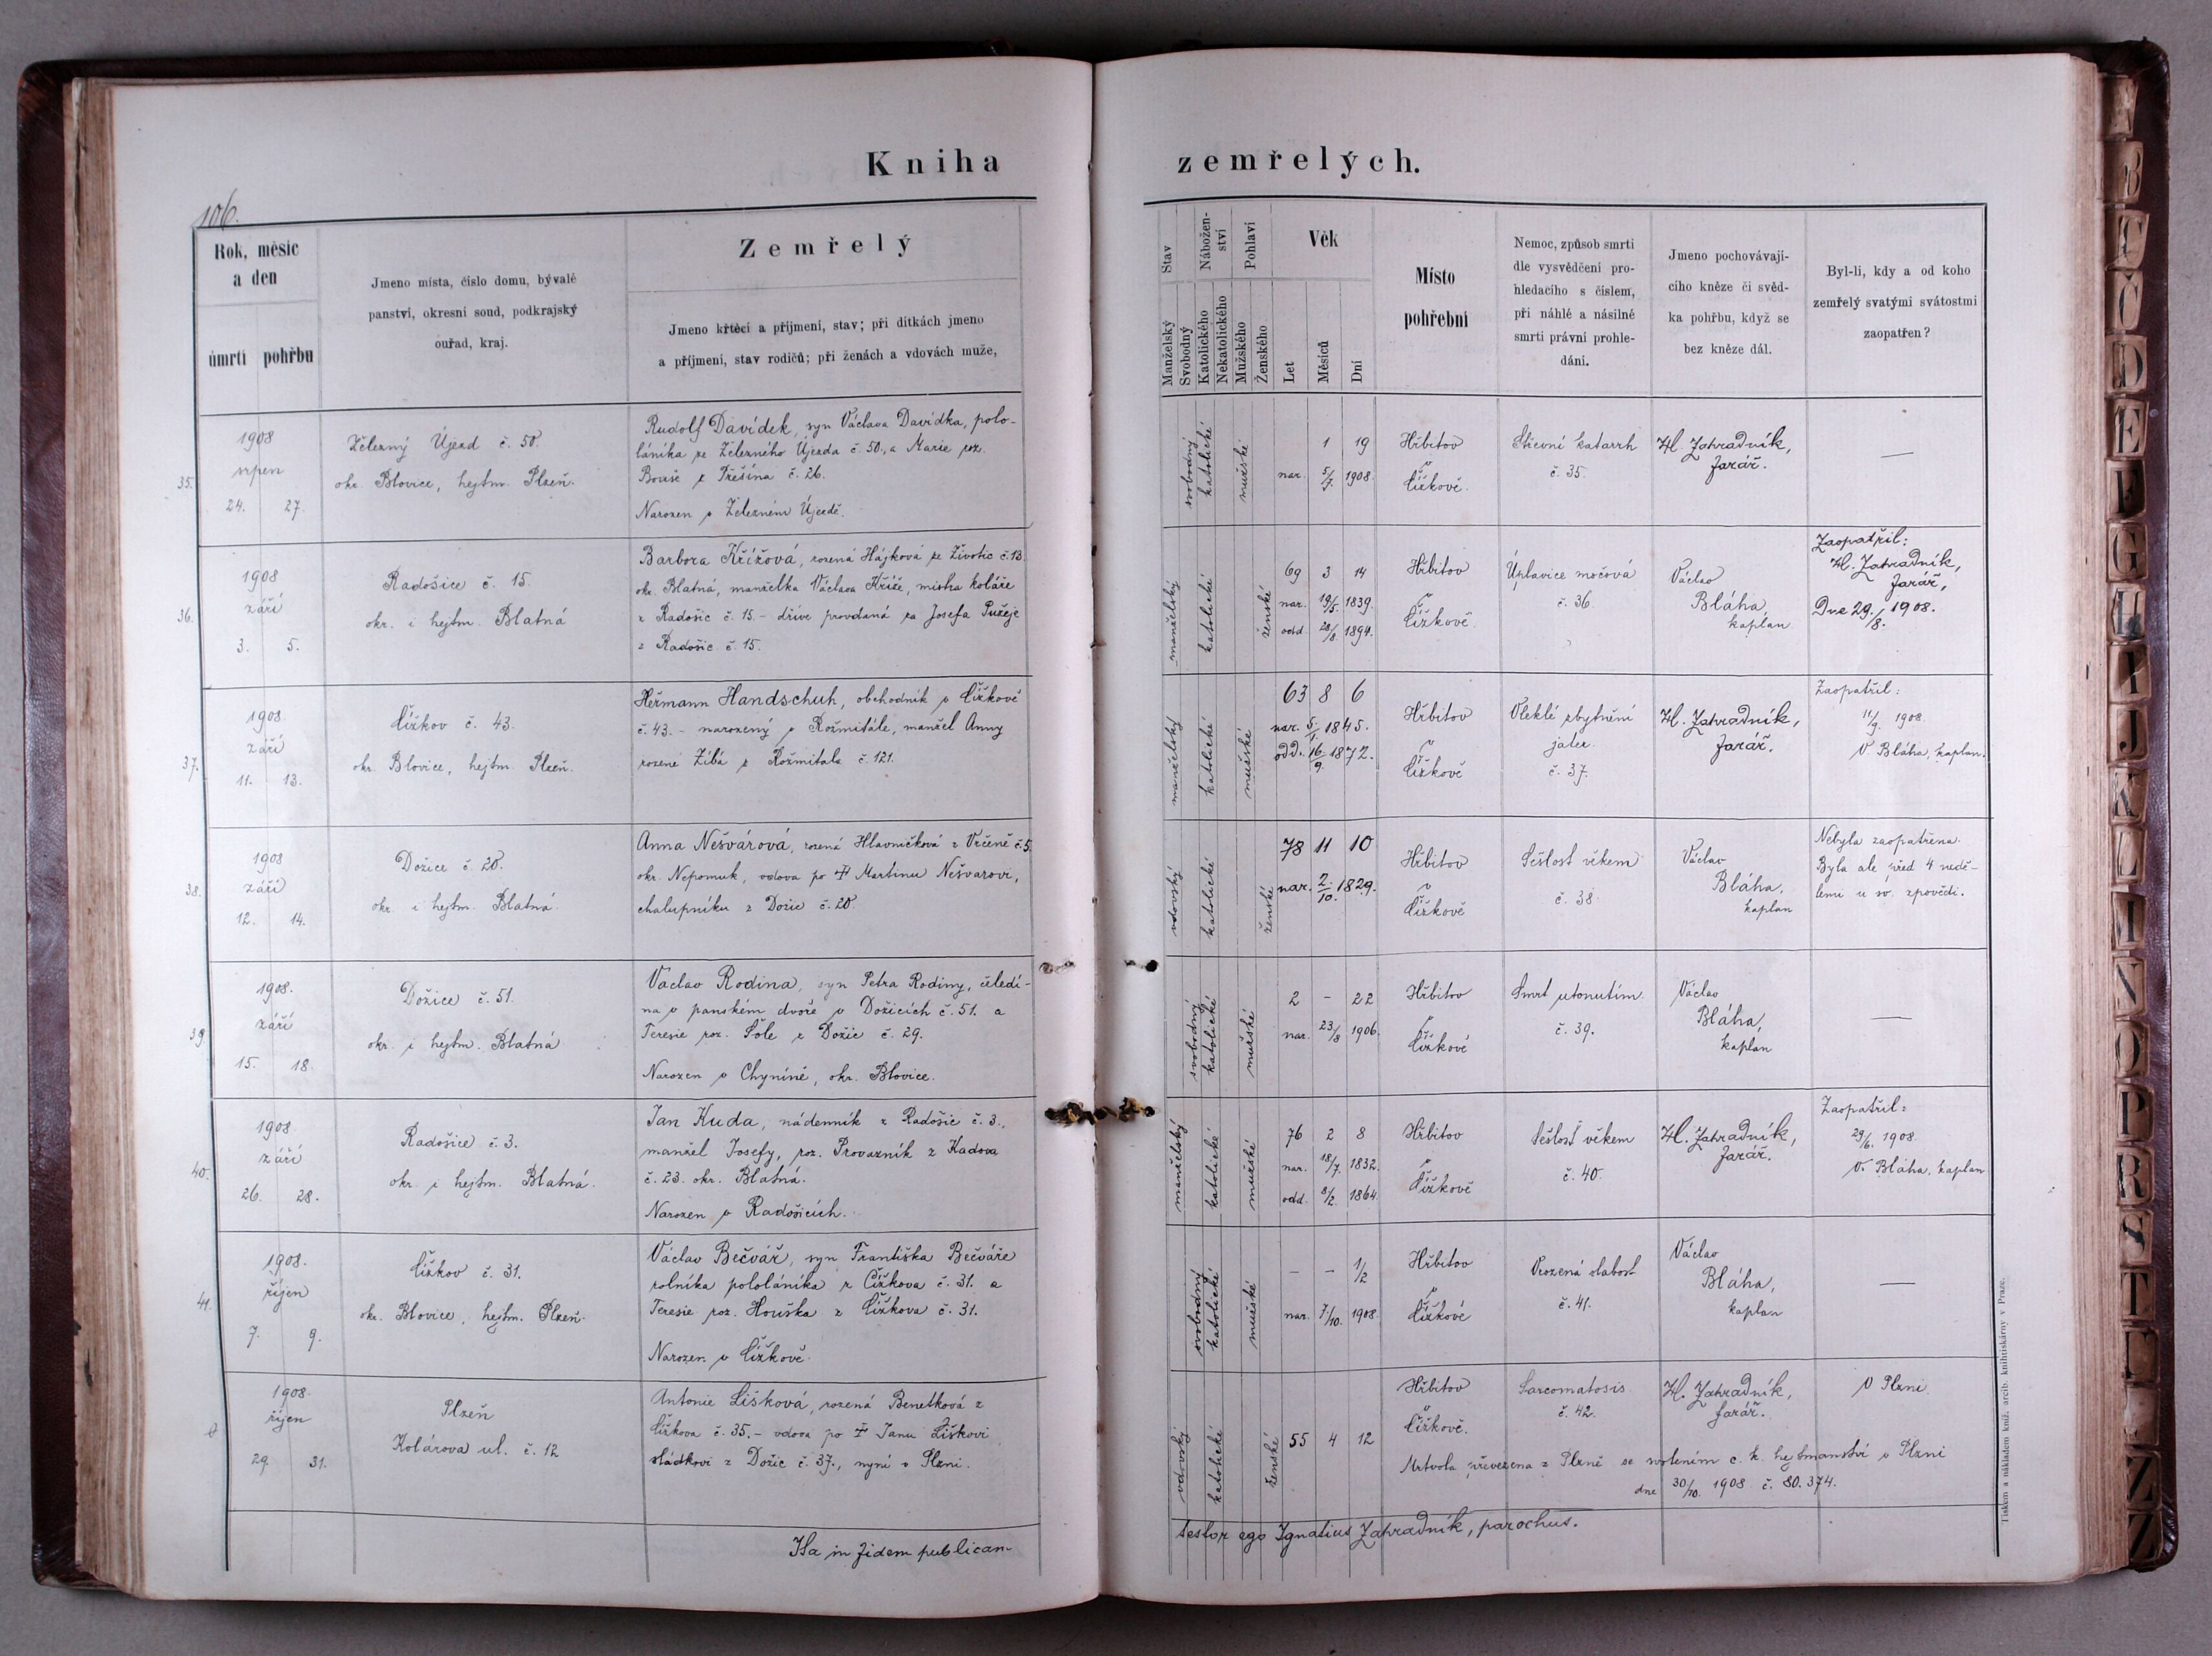 Kniha zemřelých.
106.
Rok, měsíc
a den
úmrtí pohřbu
Jmeno místa, číslo domu, bývalé
panství, okresní soud, podkrajský
ouřad, kraj.
Zemřelý
Jmeno křtěcí a přijmení, stav; při dítkách jmeno
a příjmení, stav rodičů; při ženách a vdovách muže,
Stav
Manželský
Svobodný
Nábožen-
ství
Katolického
Nekatolického
Pohlaví
Mužského
Ženského
Věk
Let
Měsíců
Dní
Místo
pohřební
Nemoc, způsob smrti
dle vysvědčení pro-
hledacího s číslem,
při náhlé a násilné
smrti právní prohle-
dání.
Jmeno pochovávají-
cího kněze či svěd-
ka pohřbu, když se
bez kněze dál.
Byl-li, kdy a od koho
zemřelý svatými svátostmi
zaopatřen?
35.
1908
srpen
24. 27.
Železný Újezd č. 50.
okr. Blovice, hejtm. Plzeň.
Rudolf Davídek, syn Václava Davídka, polo-
láníka ze Železného Újezda č. 50., a Marie roz.
Bouše z Třešína č. 26.
Narozen v Železném Újezdě.
svobodný
katolické
mužské
1 19
nar. 5/7. 1908.
Hřbitov
v
Čížkově.
Střevní katarrh
č. 35.
Hl. Zahradník,
farář.
—
36.
1908
září
3. 5.
Radošice č. 15.
okr. i hejtm. Blatná
Barbora Křížová, rozená Hájková ze Životic č. 13
okr. Blatná, manželka Václava Kříže, mistra koláře
z Radošic č. 15. – dříve provdaná za Josefa Pužeje
z Radošic č. 15.
manželský
katolické
ženské
69 3 14
nar. 19/5. 1839.
odd. 28/8. 1894.
Hřbitov
v
Čížkově.
Úplavice močová
č. 36.
Václav
Bláha,
kaplan
Zaopatřil:
Hl. Zahradník,
farář,
Dne 29./8. 1908.
37.
1908
září
11. 13.
Čížkov č. 43.
okr. Blovice, hejtm. Plzeň.
Heřmann Handschuh, obchodník v Čížkově
č. 43. – narozený v Rožmitále, manžel Anny
rozené Zíbá z Rožmitála č. 121.
manželský
katolické
mužské
63 8 6
nar. 5./1. 1845.
odd. 16./9. 1872.
Hřbitov
v
Čížkově
Vleklé zbytnění
jater
č. 37.
Hl. Zahradník,
farář.
Zaopatřil:
11/9. 1908
V. Bláha, kaplan.
38.
1908
září
12. 14.
Dožice č. 20.
okr. i hejtm. Blatná.
Anna Nešvárová, rozená Hlavničková z Vrčeně č. 5.
okr. Nepomuk, vdova po † Martinu Nešvarovi,
chalupníku z Dožic č. 20.
vdovský
katolické
ženské
78 11 10
nar. 2./10. 1829.
Hřbitov
v
Čížkově
Sešlost věkem
č. 38
Václav
Bláha,
kaplan
Nebyla zaopatřena.
Byla ale před 4 nedě-
lemi u sv. zpovědi.
39.
1908.
září
15. 18.
Dožice č. 51.
okr. i hejtm. Blatná
Václav Rodina, syn Petra Rodiny, čeledí-
na v panském dvoře v Dožicích č. 51. a
Teresie roz. Šole z Dožic č. 29.
Narozen v Chyníně, okr. Blovice.
svobodný
katolické
mužské
2 – 22
nar. 23/8 1906.
Hřbitov
v
Čížkově
Smrt utonutím.
č. 39.
Václav
Bláha,
kaplan
—
40.
1908
září
26. 28.
Radošice č. 3.
okr. i hejtm. Blatná.
Jan Kuda, nádenník z Radošic č. 3.,
manžel Josefy, roz. Provazník z Kadova
č. 23. okr. Blatná.
Narozen v Radošicích.
manželský
katolické
mužské
76 2 8
nar. 18/7. 1832.
odd. 8/2. 1864.
Hřbitov
v
Čížkově
Sešlost věkem
č. 40.
Hl. Zahradník,
farář.
Zaopatřil:
29/6. 1908.
V. Bláha, kaplan
41.
1908.
říjen
7. 9.
Čížkov č. 31.
okr. Blovice, hejtm. Plzeň.
Václav Bečvář, syn Františka Bečváře
rolníka pololáníka z Čížkova č. 31. a
Teresie roz. Houška z Čížkova č. 31.
Narozen v Čížkově.
svobodný
katolické
mužské
– – 1/2
nar. 7/10. 1908.
Hřbitov
v
Čížkově
Vrozená slabost
č. 41.
Václav
Bláha,
kaplan
—
1908.
říjen
29. 31.
Plzeň
Kolárova ul. č. 12
Antonie Lišková, rozená Benetková z
Čížkova č. 35. – vdova po † Janu Liškovi
sládkovi z Dožic č. 37., nyní v Plzni.
vdovský
katolické
ženské
55 4 12
Hřbitov
v
Čížkově.
Sarcomatosis
č. 42.
Hl. Zahradník,
farář.
V Plzni.
Mrtvola převezena z Plzně se svolením c. k. hejtmanství v Plzni
dne 30/10. 1908 č. 80.374.
Ita in fidem publicam testor ego Ignatius Zahradník, parochus.
Tiskem a nákladem kníž. arcib. knihtiskárny v Praze.
B
C
Č
D
E
F
G
H
I
J
K
L
M
N
O
P
R
S
T
Z
Ž